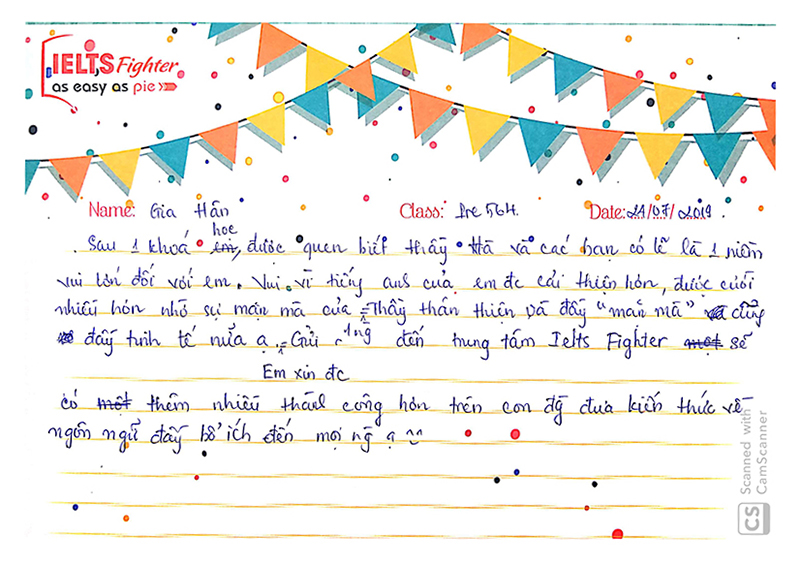 IELTS Fighter
as easy as pie
Name: Gia Hân Class: Pre 56H. Date: 21/07/2019
học
Sau 1 khoá em, được quen biết thầy Hà và các bạn có lẽ là 1 niềm
vui lớn đối với em. Vui vì tiếng anh của em đc cải thiện hơn, được cười
nhiều hơn nhờ sự mặn mà của Thầy thân thiện và đầy "mặn mà" cũng
đầy tinh tế nữa ạ. Gửi đến trung tâm Ielts Fighter một sẽ
Em xin đc
có một thêm nhiều thành công hơn trên con đg đưa kiến thức về
ngôn ngữ đầy bổ ích đến mọi ng ạ ^^
CS Scanned with
CamScanner